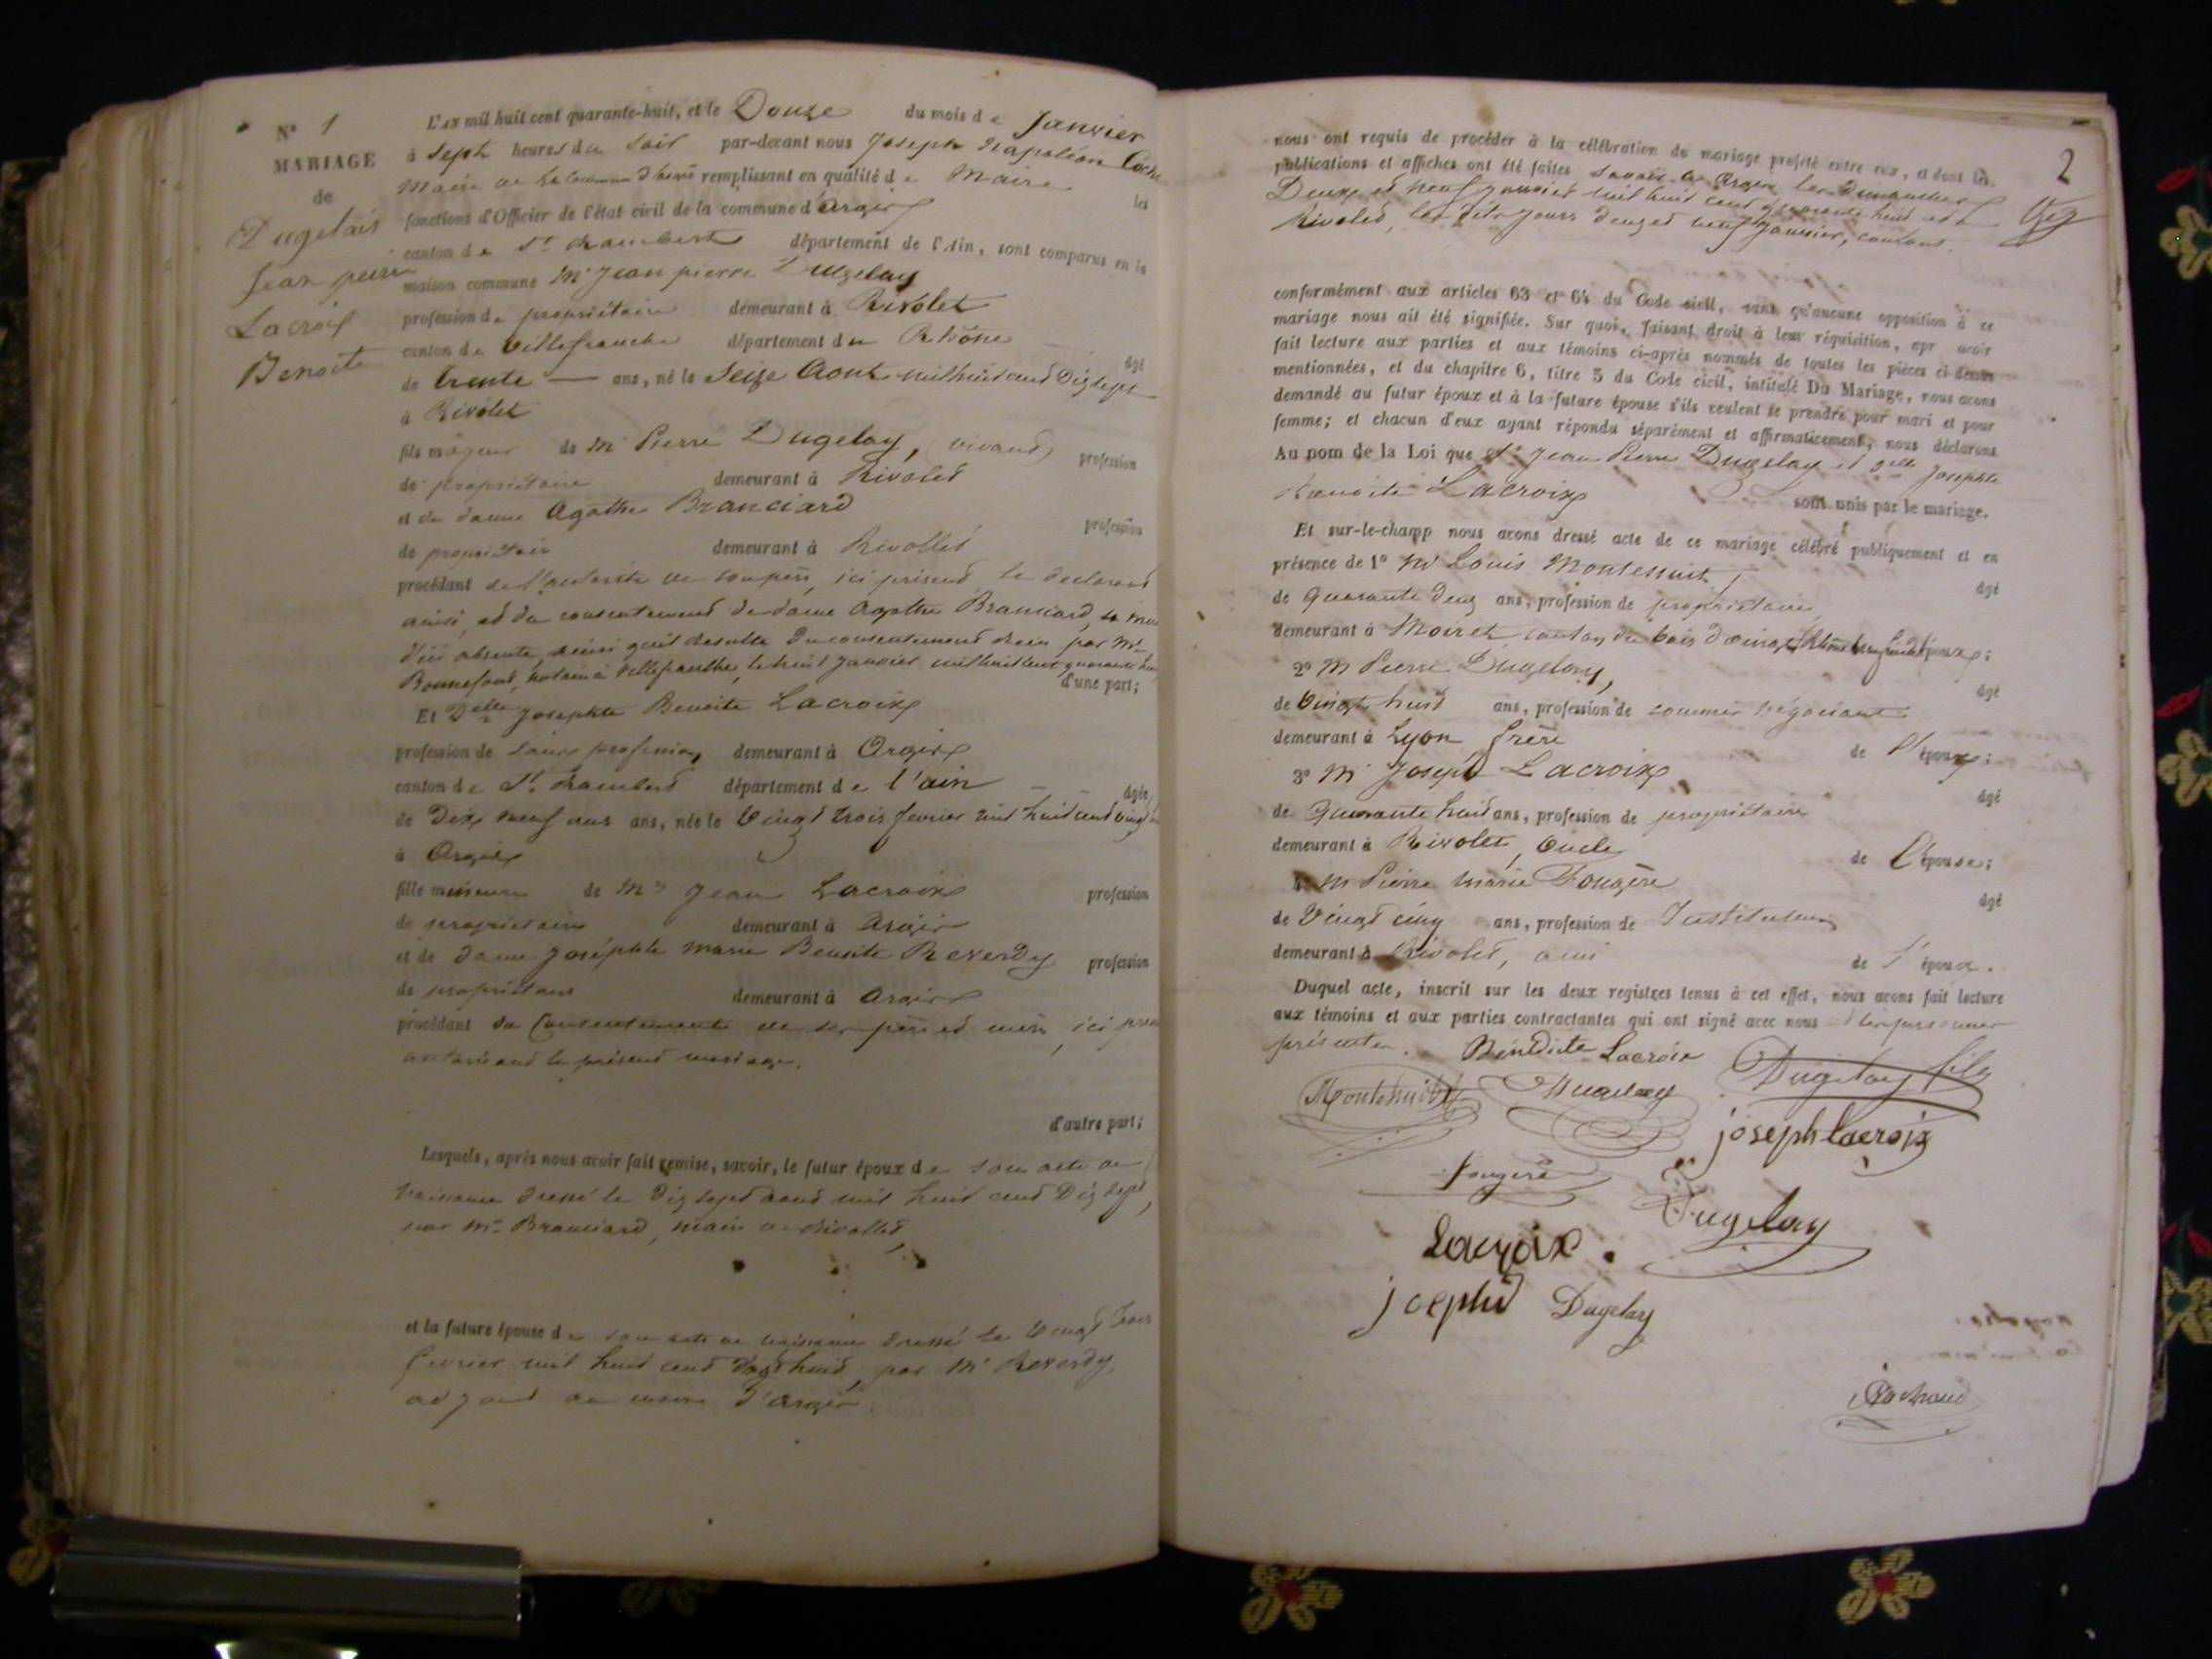 N° 1
MARIAGE
de
Dugelais
Jean pierre
Lacroix
Benoite
L'AN mil huit cent quarante-huit, et le Douze du mois de Janvier
à Sept heures du Soir par-devant nous Joseph Napoléon
Maire de la Commune remplissant en qualité de Maire les
fonctions d'Officier de l'état civil de la commune d'argix
canton de St rambert département de l'Ain, sont comparus en la
maison commune Mr Jean pierre Dugelay
profession de propriétaire demeurant à Rivolet
canton de Villefranche département du Rhône âgé
de trente — ans, né le Seize Aout mil huit cent Dix sept
à Rivolet
fils majeur de Mr Pierre Dugelay, (vivant) profession
de propriétaire demeurant à Rivolet
et de dame Agathe Branciard profession
de propriétaire demeurant à Rivollet
procédant de l'autorité de son père, ici présent le declarant
ainsi, et du consentement de dame Agathe Branciard, sa
d'ici absente, ainsi qu'il résulte du consentement par Mr
Bonnefont, notaire à Villefranche, le huit janvier mil huit cent quarante
d'une part;
Et Delle Josephte Benoite Lacroix
profession de Sans profession demeurant à Argix
canton de St rambert département de l'ain âgée
de Dix neuf ans ans, née le Vingt trois fevrier mil huit cent vingt
à Argix
fille mineure de Mr Jean Lacroix profession
de propriétaire demeurant à Argix
et de dame Joséphte marie Benoite Reverdy profession
de propriétaire demeurant à Argix
procédant du Consentement de ses père et mère, ici
autorisant le présent mariage.
d'autre part;
Lesquels, après nous avoir fait remise, savoir, le futur époux de son acte de
naissance dressé le dix sept aout mil huit cent Dix sept,
par Mr Branciard, maire de Rivollet
et la future épouse de son acte de naissance dressé le Vingt trois
fevrier mil huit cent vingt huit, par Mr Reverdy,
adjoint au maire d'Argix.
2
nous ont requis de procéder à la célébration du mariage projeté entre eux, et dont les
publications et affiches ont été faites savoir à Argix les Dimanches
Deux et neuf janvier mil huit cent quarante huit et à
Rivolet, les dits jours deux et neuf janvier, courant.
conformément aux articles 63 et 64 du Code civil, sans qu'aucune opposition à ce
mariage nous ait été signifiée. Sur quoi, faisant droit à leur réquisition, apr avoir
fait lecture aux parties et aux témoins ci-après nommés de toutes les pièces ci-dessus
mentionnées, et du chapitre 6, titre 5 du Code civil, intitulé Du Mariage, nous avons
demandé au futur époux et à la future épouse s'ils veulent se prendre pour mari et pour
femme; et chacun d'eux ayant répondu séparément et affirmativement, nous déclarons
Au nom de la Loi que Jean Pierre Dugelay et delle Josephte
Benoite Lacroix sont unis par le mariage.
Et sur-le-champ nous avons dressé acte de ce mariage célébré publiquement et en
présence de 1° Mr Louis Montessuit, âgé
de quarante deux ans, profession de propriétaire
demeurant à Moiret, canton du bois d'oingt époux;
2° M Pierre Dugelay, âgé
de Vingt huit ans, profession de commis négociant
demeurant à Lyon frère de l'époux;
3° Mr Joseph Lacroix âgé
de Quarante huit ans, profession de propriétaire
demeurant à Rivolet, Oncle de l'épouse;
M Pierre Marie Fougère âgé
de Vingt cinq ans, profession de Instituteur
demeurant à Rivolet, ami de l'époux.
Duquel acte, inscrit sur les deux registres tenus à cet effet, nous avons fait lecture
aux témoins et aux parties contractantes qui ont signé avec nous
présentes. Bénédicte Lacroix
Dugelay fils
Dugelay
joseph Lacroix
fougère
Dugelay
Lacroix.
joephte Dugelay